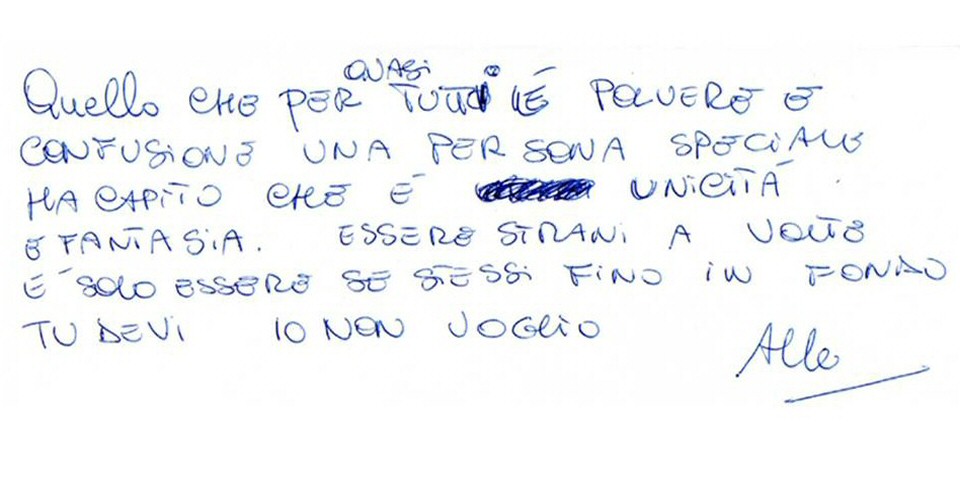 Quello CHE PER QUASI TUTTI É POLVERE E
CONFUSIONE UNA PERSONA SPECIALE
HA CAPITO CHE É UNICITÁ
E FANTASIA. ESSERE STRANI A VOLTE
É SOLO ESSERE SE STESSI FINO IN FONDO
TU DEVI IO NON VOGLIO
Alle